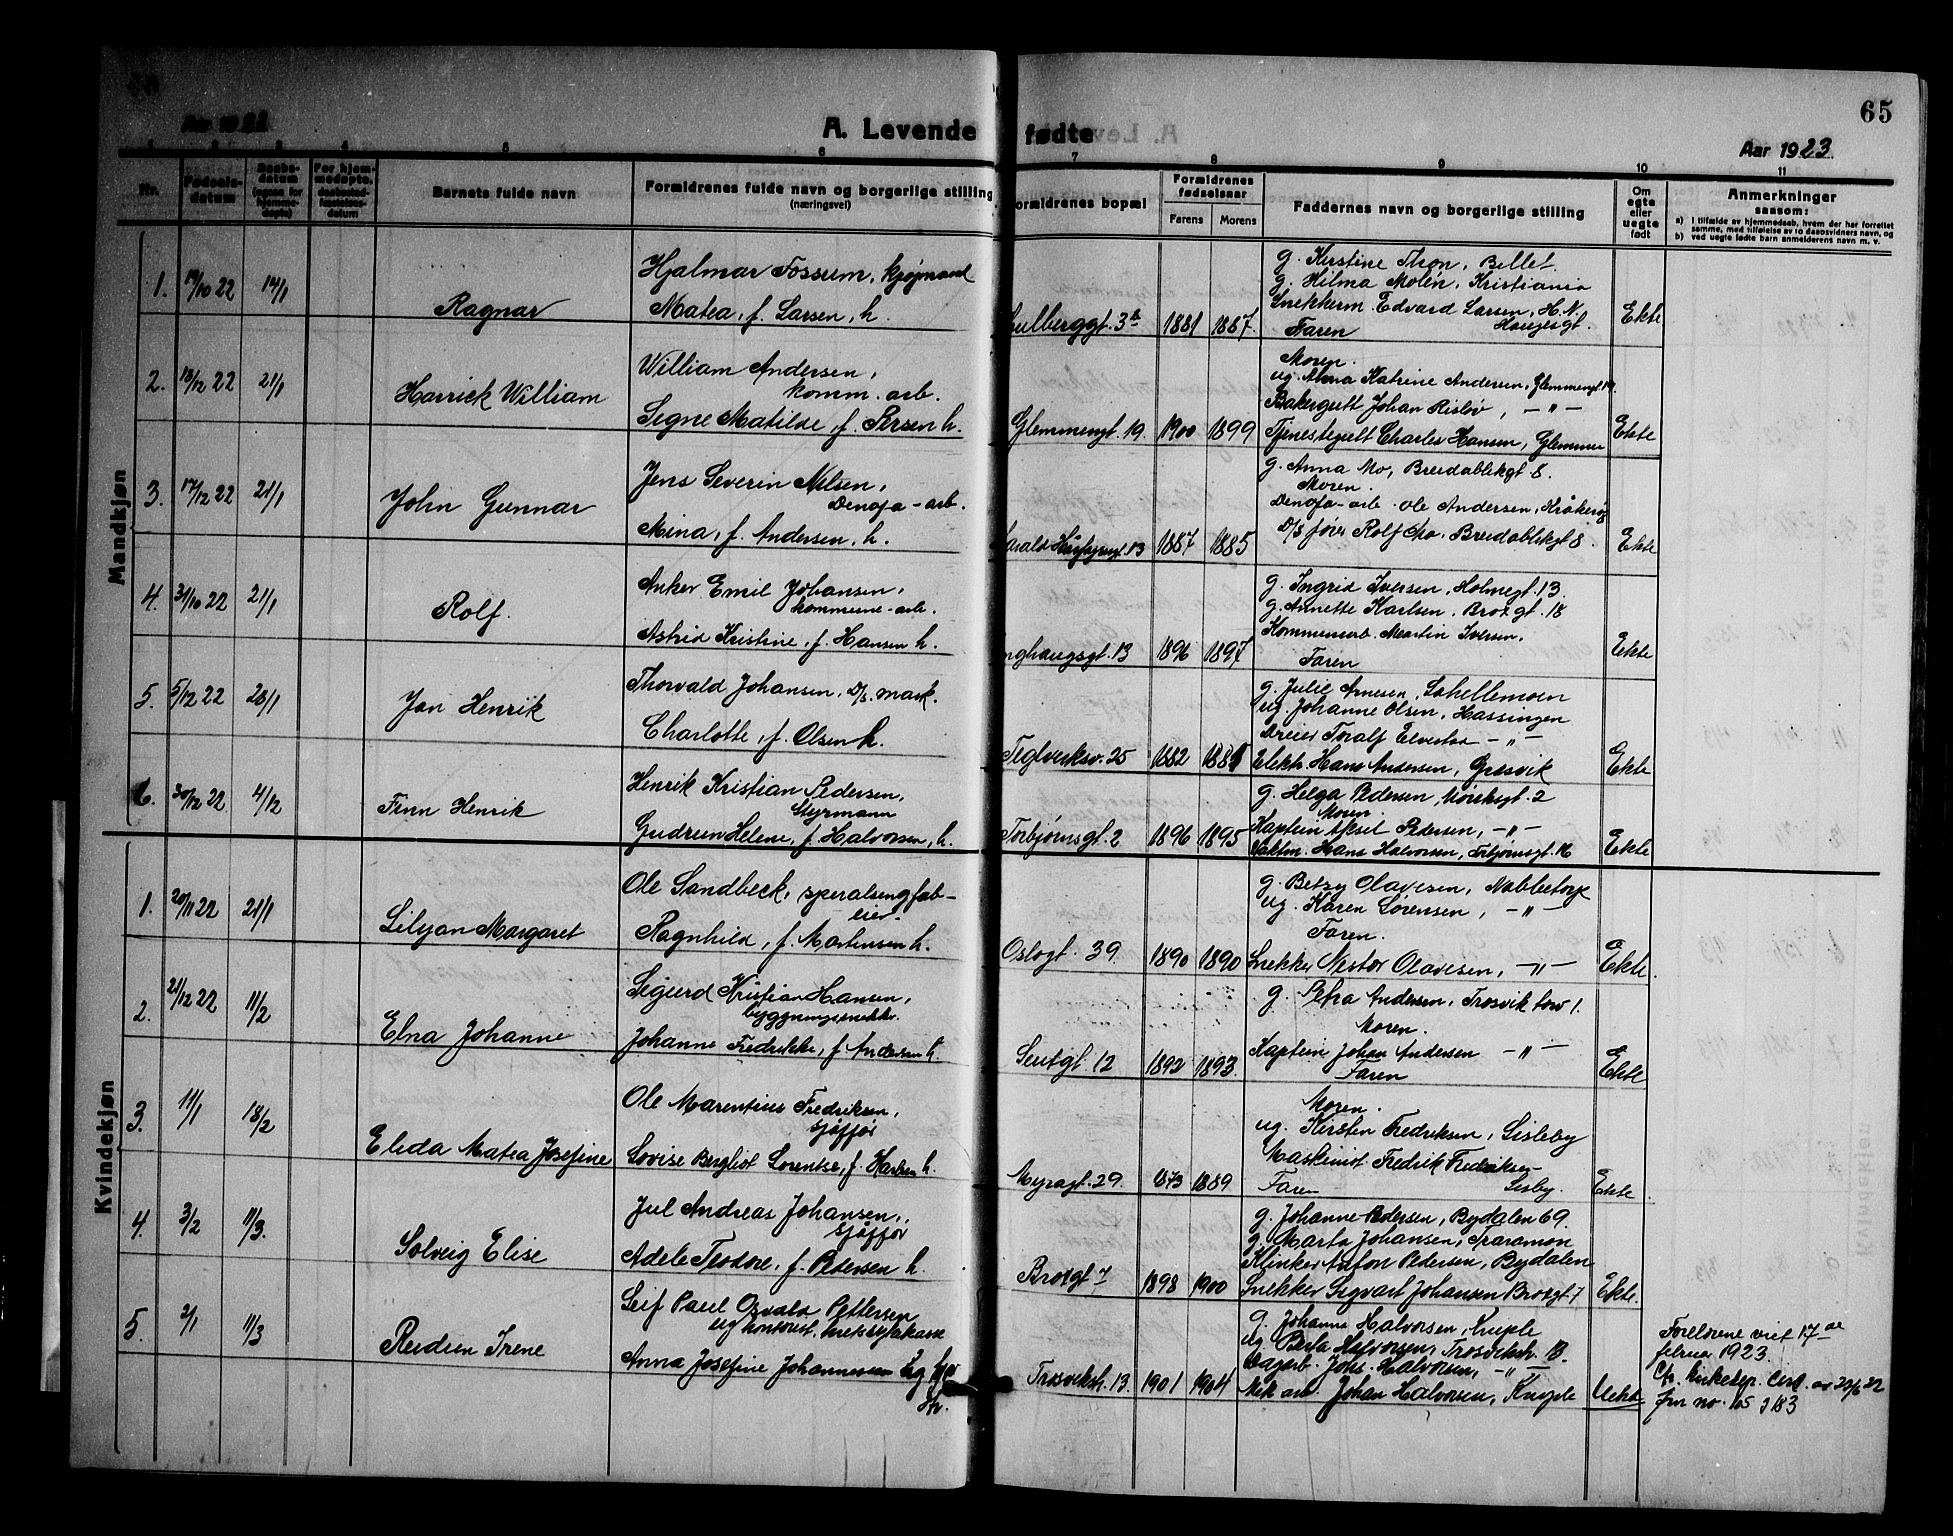 65
Aar 1922
A. Levende fødte
Aar 1923.
1 2 3 4 5 6 7 8 9 10 11
Nr.
Fødselsdatum
Daabsdatum (ogsaa for hjemmedøpte)
For hjemmedøpte, daabsstadfæstelsesdatum
Barnets fulde navn
Forældrenes fulde navn og borgerlige stilling
(næringsvei)
Forældrenes bopæl
Forældrenes fødselsaar
Farens
Morens
Faddernes navn og borgerlige stilling
Om egte eller uegte født
Anmerkninger
saasom:
a) I tilfælde av hjemmedaab, hvem der har forrettet
samme, med tilføielse av to daabsvidners navn, og
b) ved uegte fødte barn anmelderens navn m. v.
Mandkjøn
1. 19/10 22 14/1 Ragnar
Hjalmar Fossum, kjøpmand
Matea, f. Larsen, h.
3a 1881 1887
g. Kirstine Thon, Billet.
g. Hilma Molén, Kristiania
Snekkerm. Edvard Larsen, H.N.
Hauges gt.
Faren
Ekte
2. 18/12 22 21/1 Harrick William
William Andersen,
komm. arb.
Signe Matilde, f. Iversen h.
Glemmengt. 19. 1900 1899
Moren.
ug. Alma Katrine Andersen, Glemmengt. 19.
Bakergutt Johan Risløv, -"-
Tjenestegutt Charles Hansen, Glemmen
Ekte
3. 17/12 22 21/1 John Gunnar
Jens Severin Nilsen,
Denofa-arb.
Mina, f. Andersen, h.
Harald Hårfagresgt. 13 1887 1885
g. Anna Mo, Breidablikgt 8.
Moren.
Denofa-arb. Ole Andersen, Kråkerøy
D/S fører Rolf Mo, Breidablikgt 8.
Ekte
4. 31/10 22 21/1 Rolf.
Anker Emil Johansen,
kommune-arb.
Astrid Kristine, f. Hansen h.
13 1896 1897
g. Ingrid Iversen, Holmegt. 13.
g. Annette Karlsen, Brofgt. 18
Kommunearb. Martin Iversen.
Faren
Ekte
5. 5/12 22 28/1 Jan Henrik
Thorvald Johansen, D/S. mask.
Charlotte, f. Olsen h.
Teglverksv. 25 1882
g. Julie Arnesen, Lahellemoen
ug. Johanne Olsen, Hassingen
Dreier Toralf Elvestad -"-
Elektr. Hans Andersen, Gresvik
Ekte
6. 30/12 22 4/12 Finn Henrik
Henrik Kristian Pedersen,
Styrmann
Gudrun Helene, f. Halvorsen, h.
Torbjørnsgt. 2 1896 1895
g. Helga Pedersen, Mørksgt. 2
Moren.
Kaptein Aksel Pedersen, -"-
Vaktm. Hans Halvorsen, Torbjørnsgt. 16
Ekte
Kvindekjøn
1. 20/11 22 21/1 Lilyan Margaret
Ole Sandbeck, speralseng fab-
eier
Ragnhild, f. Martinsen h.
Oslogt. 39. 1890 1890
g. Betzy Olavesen, Nabbetorp
ug. Karen Sørensen, -"-
Faren.
Snekker Nestor Olavesen, -"-
Ekte.
2. 21/12 22 11/2 Elna Johanne
Sigurd Kristian Hansen,
bygningssnekker.
Johanne Fredrikke, f. Andersen h.
12 1892 1893.
g. Petra Andersen, Trosvik tow 1.
Moren.
Kaptein Johan Andersen -"-
Faren
Ekte
3. 11/1 18/2 Elida Matea Josefine
Ole Marentius Fredriksen,
sjåffør
Lovise Bergliot Lorentse, f. Karlsen h.
Myragt. 29. 1873 1889
Moren.
ug. Kirsten Fredriksen, Lisleby
Maskinist Fredrik Fredriksen
Lisleby.
Faren
Ekte
4. 3/2 11/3. Solveig Elise
Jul Andreas Johansen,
sjåffør
Adele Teodore, f. Pedersen h.
Brofgt 7 1898 1900
g. Johanne Pedersen, Bydalen 69.
g. Marta Johansen, Traramon
Klinker Anton Pedersen, Bydalen
Snekker Sigvart Johansen Brofgt. 7
Ekte.
5. 2/1 11/3 Reidun Irene
Leif Paul Osvald Pettersen
ug kontorist,
Anna Josefine Johannessen
Trosvikstr. 13. 1901 1904
g. Johanne Halvorsen, Kniple
ug. Berta Halvorsen, Trosvikstr. 13.
Dagarb. Johs. Halvorsen, -"-
Mek arb. Johan Halvorsen, Kniple
Uekte
Foreldrene viet 17de
februar 1923.
Cfr. kirkedep. cirk. av 22/6 22
jnr no. 105 J 183